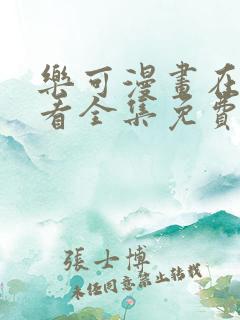 樂可漫畫在
看全集免費
張士博
未經同意禁止轉載